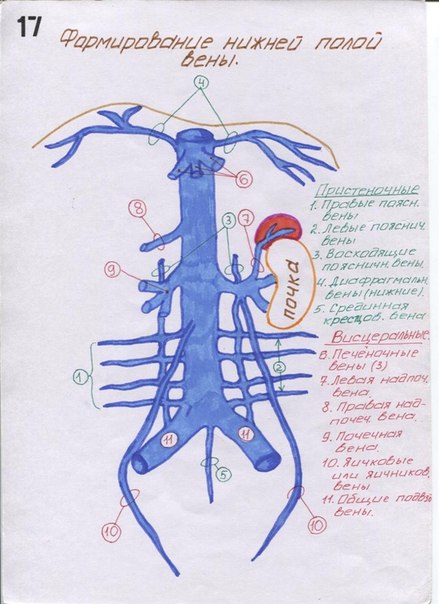 17
Формирование нижней полой
вены.
4
6
8
3
7
9
почка
1
2
11
11
5
10
10
Пристеночные
1. Правые поясн.
вены
2. Левые пояснич.
вены
3. Восходящие
пояснич. вены.
4. Диафрагмальн.
вены (нижние).
5. Срединная
крестцов. вена
Висцеральные.
6. Печёночные
вены (3)
7. Левая надпоч.
вена.
8. Правая над-
почеч. вена.
9. Почечная
вена.
10. Яичковые
или яичников.
вены
11. Общие подвз
вены.